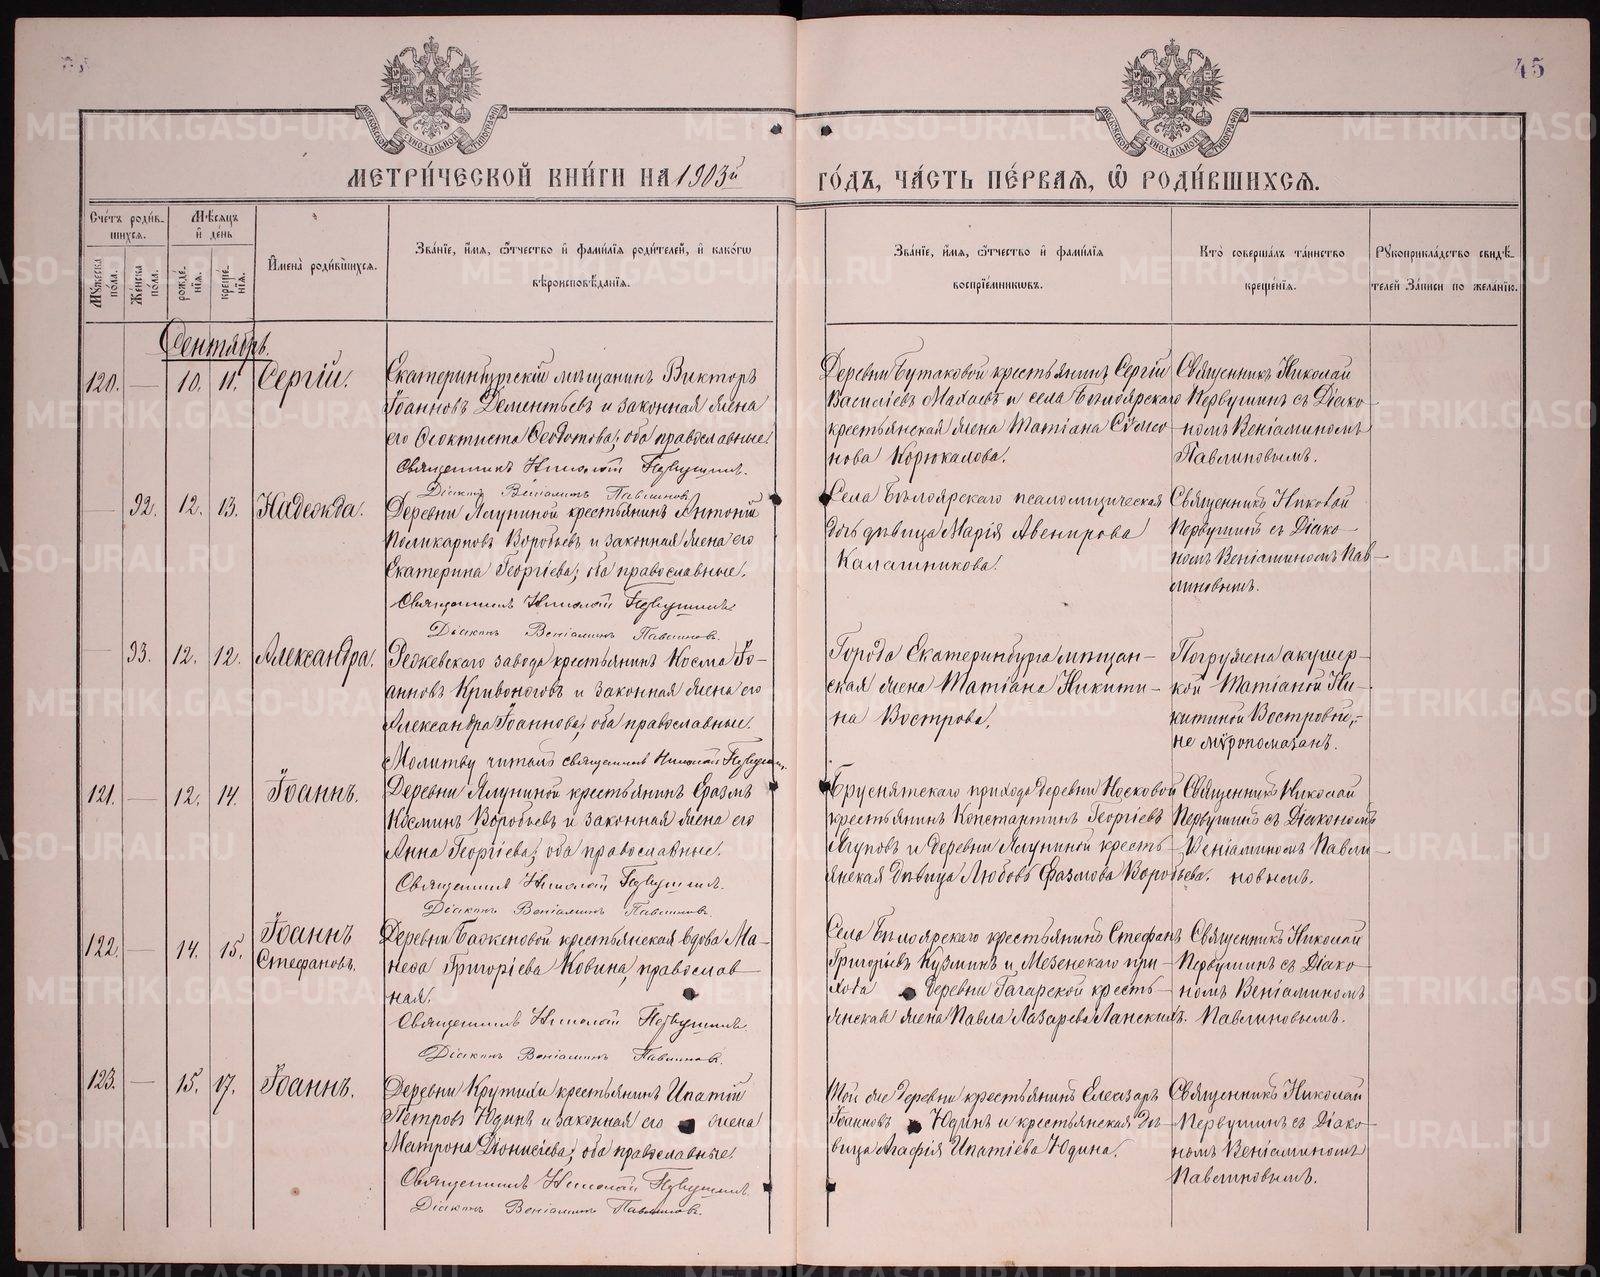 45
МОСКОВСКОЙ СѴНОДАЛЬНОЙ ТИПОГРАФІИ
МОСКОВСКОЙ СѴНОДАЛЬНОЙ ТИПОГРАФІИ
МЕТРИ́ЧЕСКОЙ КНИ́ГИ НА 1903й
ГО́ДЪ, ЧА́СТЬ ПЕ́РВАЯ, Ѡ РОДИ́ВШИХСЯ.
Сче́тъ роди́в-
шихся.
Мѣ́сяцъ
и де́нь
Му́жеска по́ла.
Же́нска по́ла.
рожде́-
нія.
креще́-
нія.
Имена̀ роди́вшихся.
Зва́ніе, и́мя, ѻ҆́тчество и҆ фами́лія роди́телей, и҆ како́гѡ
вѣроисповѣ́данія.
Зва́ніе, и́мя, ѻ҆́тчество и҆ фами́лія
воспріе́мниковъ.
Кто̀ соверша́лъ та́инство
креще́нія.
Рукоприкла́дство свидѣ́-
телей за́писи по жела́нію.
Сентябрь.
120. — 10. 11. Сергій.
Екатеринбургскій мѣщанинъ Викторъ
Іоанновъ Дементьевъ и законная жена
его Феоктиста Ѳеодотова; оба православные.
Священникъ Николай Первушинъ.
Діаконъ Веніаминъ Павлиновъ.
Деревни Бутаковой крестьянинъ Сергій
Василіевъ Махаевъ и села Бѣлоярскаго
крестьянская жена Татіана Сѵмео
нова Корюкалова.
Священникъ Николай
Первушинъ съ Діако-
номъ Веніаминомъ
Павлиновымъ.
— 92. 12. 13. Надежда.
Деревни Ялуниной крестьянинъ Антоній
Поликарповъ Воробьевъ и законная жена его
Екатерина Георгіева; оба православные.
Священникъ Николай Первушинъ.
Діаконъ Веніаминъ Павлиновъ.
Села Бѣлоярскаго псаломщическая
дочь дѣвица Марія Авенирова
Калашникова.
Священникъ Николай
Первушинъ съ Діако-
номъ Веніаминомъ Пав-
линовымъ.
— 93. 12. 12. Александра.
Режевскаго завода крестьянинъ Косма Іо-
анновъ Кривоноговъ и законная жена его
Александра Іоаннова; оба православные.
Молитву читалъ священникъ Николай Первушинъ.
Города Екатеринбурга мѣщан-
ская жена Татіана Никити-
на Вострова.
Погружена акушер-
кой Татіаной Ни-
китиной Востровой,-
не мѵропомазанъ.
121. — 12. 14. Іоаннъ.
Деревни Ялуниной крестьянинъ Еразмъ
Косминъ Воробьевъ и законная жена его
Анна Георгіева; оба православные.
Священникъ Николай Первушинъ.
Діаконъ Веніаминъ Павлиновъ.
Бруснятскаго прихода деревни Носковой
крестьянинъ Константинъ Георгіевъ
Ягуповъ и деревни Ялуниной кресть-
янская дѣвица Любовь Еразмова Воробьева.
Священникъ Николай
Первушинъ съ Діакономъ
Веніаминомъ Павли-
новымъ.
122. — 14. 15. Іоаннъ
Стефановъ.
Деревни Баженовой крестьянская вдова Ма-
неѳа Григоріева Ковина, православ-
ная.
Священникъ Николай Первушинъ.
Діаконъ Веніаминъ Павлиновъ.
Села Бѣлоярскаго крестьянинъ Стефанъ
Григоріевъ Кузминъ и Мезенскаго при-
хода деревни Гагарской кресть-
янская жена Павла Лазарева Ланскихъ.
Священникъ Николай
Первушинъ съ Діако-
номъ Веніаминомъ
Павлиновымъ.
123. — 15. 17. Іоаннъ.
Деревни Крутихи крестьянинъ Ипатій
Петровъ Юдинъ и законная его жена
Матрона Діонисіева; оба православные.
Священникъ Николай Первушинъ.
Діаконъ Веніаминъ Павлиновъ.
Той же деревни крестьянинъ Елеазаръ
Іоанновъ Юдинъ и крестьянская дѣ-
вица Агафія Ипатіева Юдина.
Священникъ Николай
Первушинъ съ Діако-
номъ Веніаминомъ
Павлиновымъ.
METRIKI.GASO-URAL.RU